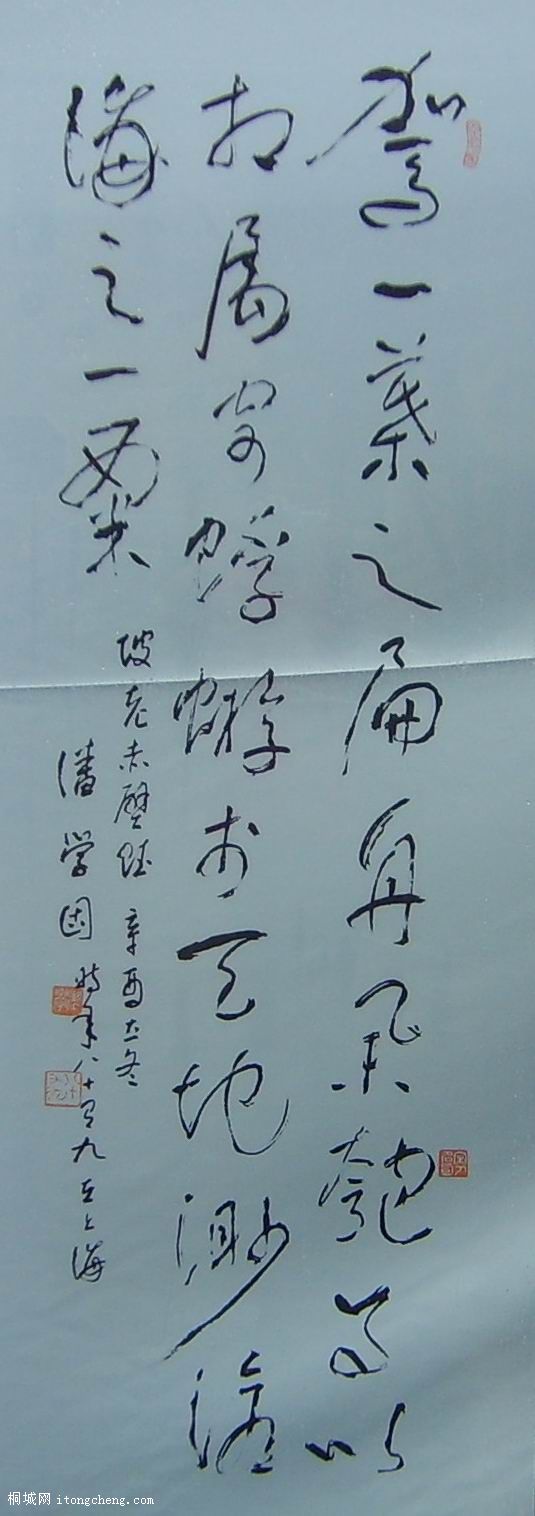 駕一葉之扁舟舉匏尊以
相属寄蜉蝣於天地渺滄
海之一粟
坡老赤壁賦 辛酉立冬
潘学固時年八十有九在上海
桐城网 itongcheng.com